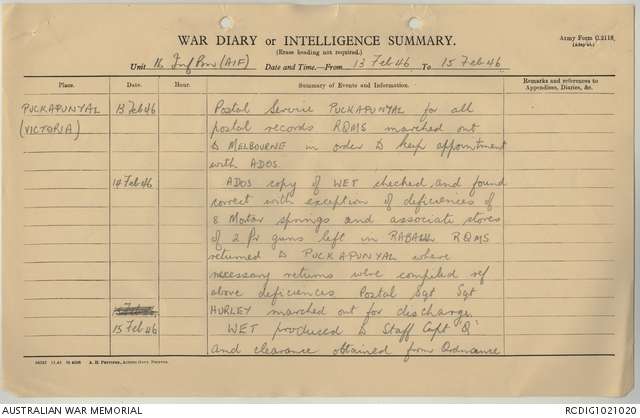 WAR DIARY or INTELLIGENCE SUMMARY.
(Erase heading not required.)
Army Form C.2118.
(Adapted.)
Unit 16 Inf Pnr (AIF) Date and Time.—From 13 Feb 46 To 15 Feb 46
Place. Date. Time. Summary of Events and Information. Remarks and references to
Appendices, Diaries, &c.
PUCKAPUNYAL 13 Feb 46 Postal Service PUCKAPUNYAL for all
(VICTORIA) postal records RQMS marched out
to MELBOURNE in order to keep appointment
with ADOS
14 Feb 46 ADOS copy of WET checked and found
correct with exception of deficiences of
8 Mortar springs and associate stores
of 2 Pr guns left in RABAUL RQMS
returned to PUCKAPUNYAL where
necessary returns were compiled ref
above deficiences Postal Sgt Sgt
HURLEY marched out for discharge
15 Feb 46 WET produced to Staff Capt 'Q'
and clearance obtained from Ordnance
A. H. Pettifer, Acting Govt. Printer.
AUSTRALIAN WAR MEMORIAL
RCDIG1021020